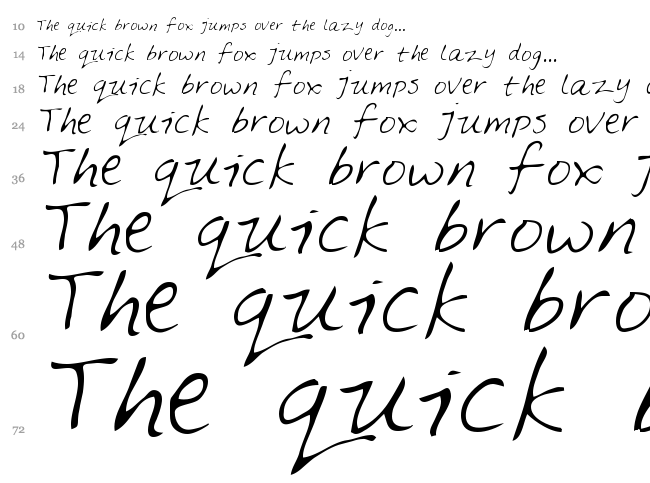 10 The quick brown fox jumps over the lazy dog...
14 The quick brown fox jumps over the lazy dog...
18 The quick brown fox jumps over the lazy
24 The quick brown fox jumps over
36 The quick brown fox j
48 The quick brown
60 The quick bro
72 The quick